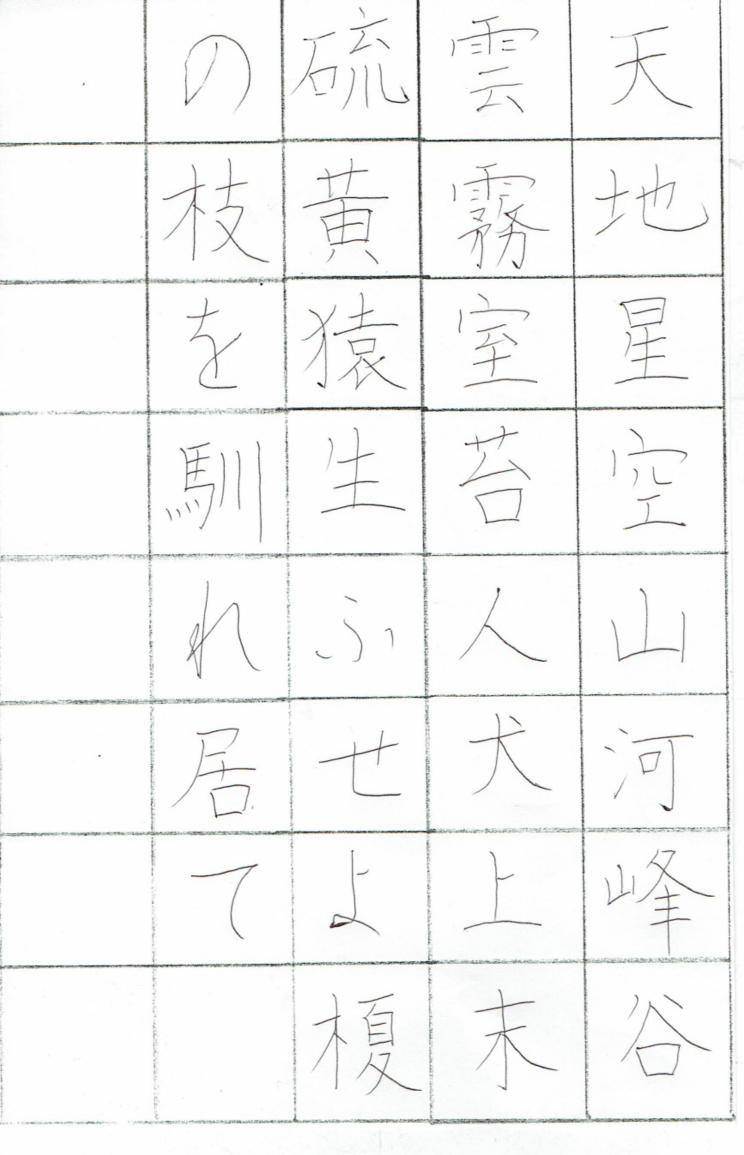 天地星空山河峰谷
雲霧室苔人犬上末
硫黄猿生ふせよ榎
の枝を馴れ居て